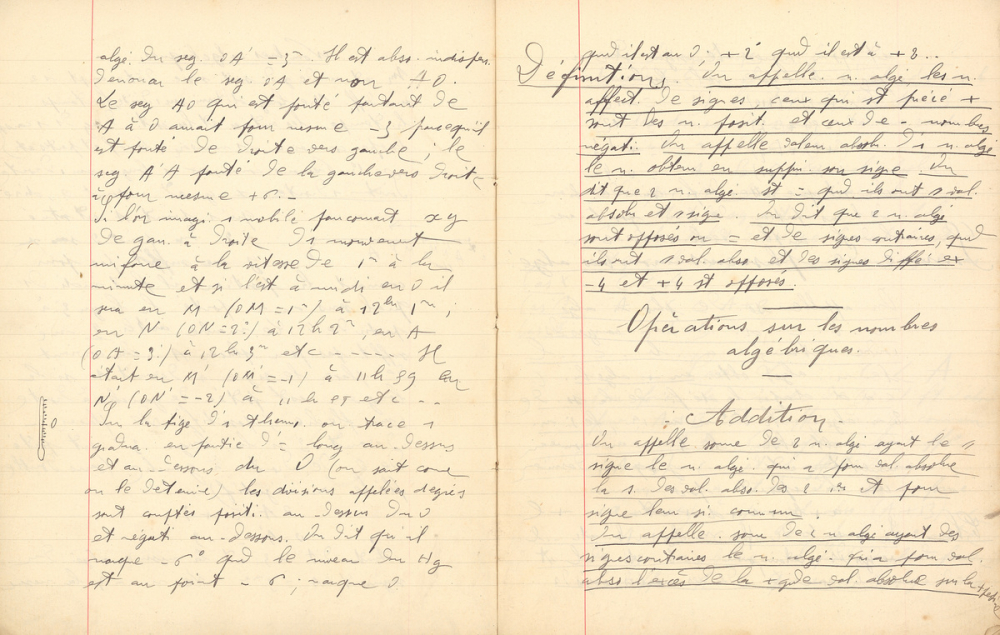 algé. du seg. OA' = -3. Il est abso. indispen.
d'énoncer le seg. OA et non AO.
Le seg. AO qui est porté partant de
A à O aurait pour mesure -3 parcequ'il
est porté de droite vers gauche ; le
seg. A'A porté de la gauche vers droite
a pour mesure +6. -
Si l'on imagi. 1 mobile parcourant xy
de gau. à droite d'1 mouvement
uniforme à la vitesse de 1m à la
minute et si l'est à midi en O il
sera en M (OM = 1m) à 12h 1m ;
en N (ON = 2) à 12h 2m, en A
(OA = 3) à 12h 3m etc ----- Il
était en M' (OM' = -1) à 11h 59 en
N' (ON' = -2) à 11h 58 etc --
Sur la tige d'1 thermo. on trace 1
gradua. en partie d'= long au-dessus
et au-dessous du O (on sait come
on le détermine) les divisions appelées degrés
sont comptés positi. au-dessus du O
et négati au-dessous. On dit qu'il
marque -6° qud le niveau du Hg
est au point -6 ; marque O
qud il est au O ; +2 qud il est à +2...
Définitions. On appelle n. algé les n.
affect. de signes, ceux qui st précé +
sont les n. posit. et ceux de - nombres
négati. On appelle valeur absolu. d'1 n. algé
le n. obtenu en suppri. son signe. On
dit que 2 n. algé st = qud ils ont 1 val.
absolu et 1 signe. On dit que 2 n. algé
sont opposés ou = et de signes contraires, qud
ils ont 1 val. abso et des signes diffé ex
-4 et +4 st opposés.
Opérations sur les nombres
algébriques.
Addition.
On appelle some de 2 n. algé ayant le
signe le n. algé. qui a pour val. absolue
la s. des val. abso. des 2 et pour
signe leur si. commun.
On appelle some de 2 n algé ayant des
signes contraires le n. algé. qui a pour val.
abso l'excès de la + gde val. absolue sur la + petite